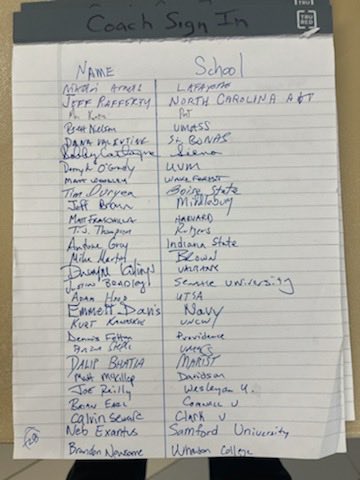 TRU
Coach Sign In
TRU RED
NAME School
Nikolri LAFAYETTE
JEFF RAFFERTY NORTH CAROLINA A&T
Pitt
Brett Nelson UMASS
DANA VALENTINE St. BONAS
Bobby Castagna Siena
Darryk O'Grady UVM
MATT WOODLEY WAKE FOREST
Tim Duryea Boise State
Jeff Brown Middlebury
MATT FRASCHILLA HARVARD
T.J. Thompson Rutgers
Antoine Gray Indiana State
Mike Martel Brown
Dwayne Killings
JUSTIN BRADLEY Seattle University
ADAM HOOD UTSA
EMMETT DAVIS Navy
KURT KANASKIE UNCW
Dennis Felton Providence
UMKC
DALIP BHATIA MARIST
Matt McKillop Davidson
JOE Reilly Wesleyan U.
BRIAN EARL CORNELL U
Calvin Clark U
Neb Exantus Samford University
28
Brandon Newsome Wheaton College